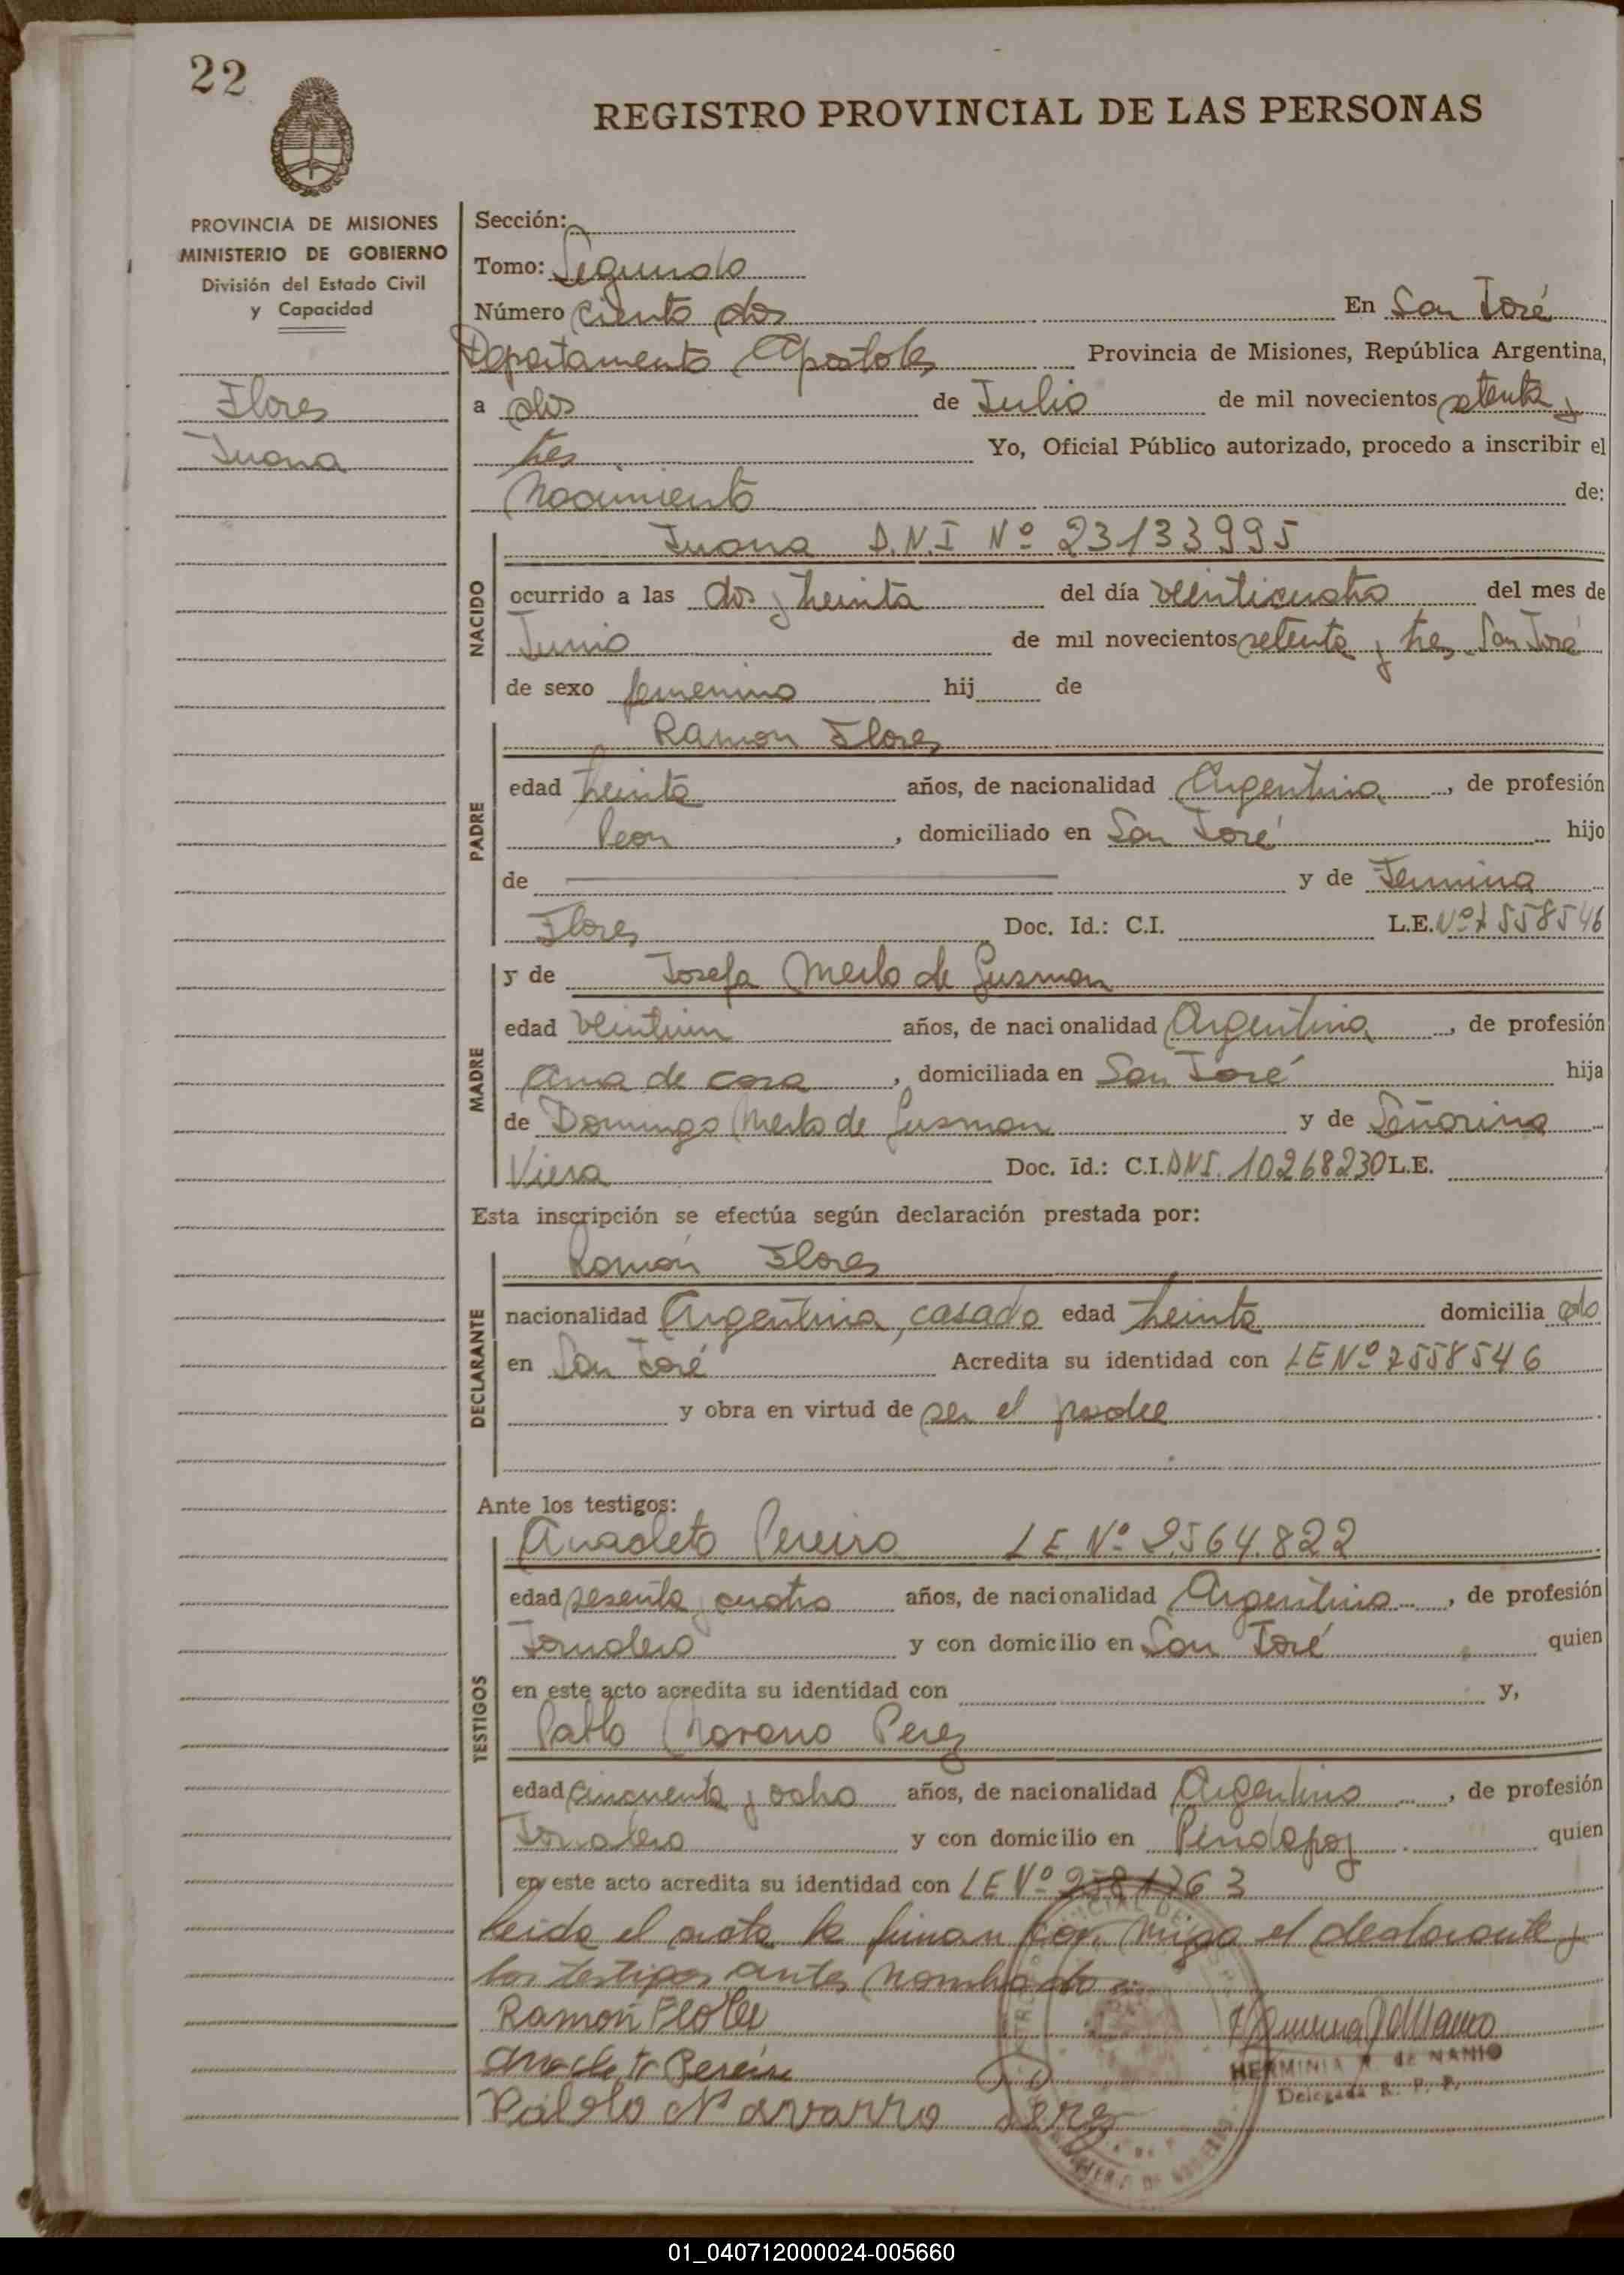 22
REGISTRO PROVINCIAL DE LAS PERSONAS
PROVINCIA DE MISIONES
MINISTERIO DE GOBIERNO
División del Estado Civil
y Capacidad
Flores
Juana
Sección:
Tomo: Segundo
Número ciento dos En San José
Departamento Apostoles Provincia de Misiones, República Argentina,
a dos de Julio de mil novecientos setenta y
tres Yo, Oficial Público autorizado, procedo a inscribir el
Nacimiento de:
NACIDO
Juana D.N.I Nº 23133995
ocurrido a las dos y treinta del día veinticuatro del mes de
Junio de mil novecientos setenta y tres San José
de sexo femenino hij de
PADRE
Ramon Flores
edad treinta años, de nacionalidad Argentina, de profesión
Peon, domiciliado en San José hijo
de y de Fermina
Flores Doc. Id.: C.I. L.E. Nº 7558546
MADRE
y de Josefa Merlo de Gusman
edad veintiun años, de nacionalidad Argentina, de profesión
Ama de casa, domiciliada en San José hija
de Domingo Merlo de Gusman y de Señorina
Viera Doc. Id.: C.I. DNI. 10268230 L.E.
Esta inscripción se efectúa según declaración prestada por:
DECLARANTE
Ramón Flores
nacionalidad Argentina, casado edad treinta domicilia do
en San José Acredita su identidad con LE Nº 7558546
y obra en virtud de ser el padre
Ante los testigos:
TESTIGOS
Anacleto Pereira LE Nº 2564.822
edad sesenta y cuatro años, de nacionalidad Argentina, de profesión
Jornalero y con domicilio en San José quien
en este acto acredita su identidad con y,
Pablo Navarro Perez
edad cincuenta y ocho años, de nacionalidad Argentina, de profesión
Jornalero y con domicilio en Pindapoy quien
en este acto acredita su identidad con LE Nº
Leida el acta la firman con migo el declarante y
los testigos antes nombrados
Ramón Flores
Anacleto Pereira
Pablo Navarro Perez
HERMINIA R. de NANIO
Delegada R. P. P.
01_040712000024-005660